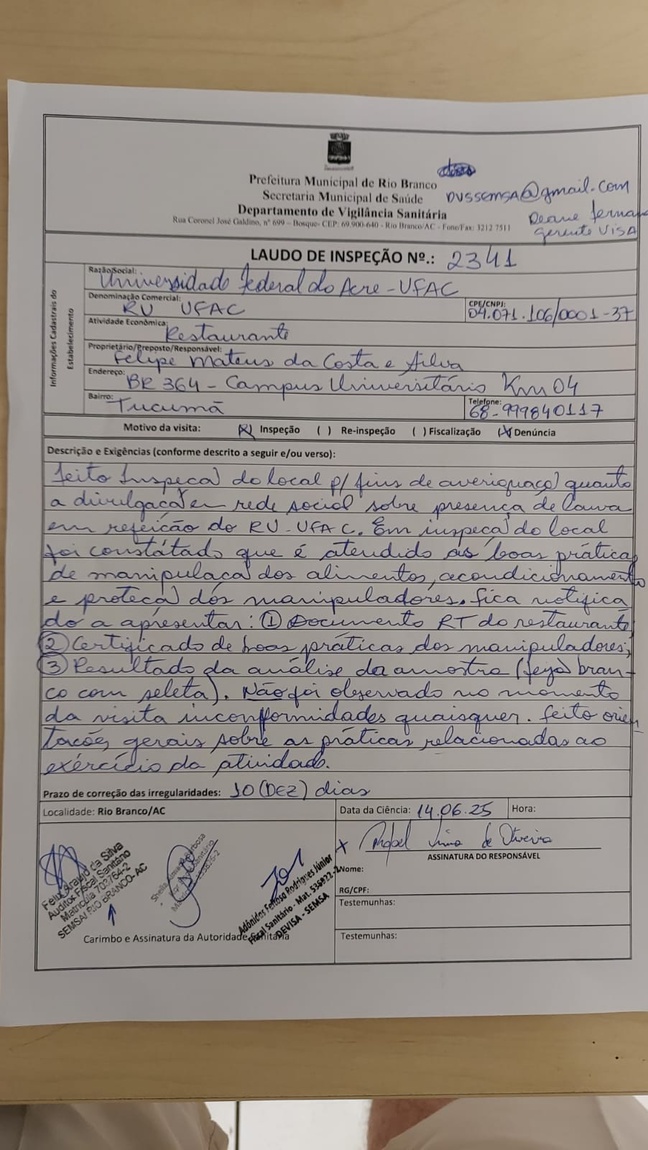 Prefeitura Municipal de Rio Branco
Secretaria Municipal de Saúde
Departamento de Vigilância Sanitária
Rua Coronel José Galdino, nº 699 – Bosque- CEP: 69.900-640 - Rio Branco/AC - Fone/Fax: 3212 7511
DVSSEMSA@gmail.com
Deane
gerente VISA
LAUDO DE INSPEÇÃO Nº.: 2341
Informações Cadastrais do Estabelecimento
Razão/Social: Universidade Federal do Acre - UFAC
Denominação Comercial: RU UFAC
CPF/CNPJ: 04.071.106/0001-37
Atividade Econômica: Restaurante
Proprietário/Preposto/Responsável: Felipe Mateus da Costa e Silva
Endereço: BR 364 - Campus Universitário Km 04
Bairro: Tucumã
Telefone: 68-999840117
Motivo da visita: (X) Inspeção ( ) Re-inspeção ( ) Fiscalização (X) Denúncia
Descrição e Exigências (conforme descrito a seguir e/ou verso):
Feito Inspeçaõ do local p/ fins de averiguaçaõ quanto
a divulgaçaõ em rede social sobre presença de larva
em refeição do RU-UFAC. Em inspeçaõ do local
foi constatado que é atendido as boas práticas
de manipulaçaõ dos alimentos, acondicionamento
e proteçaõ dos manipuladores. Fica notifica
do a apresentar: ① Documento RT do restaurante;
② Certificado de boas práticas dos manipuladores;
③ Resultado da análise da amostra (feijaõ bran-
co com seleta). Não foi observado no momento
da visita inconformidades quaisquer. Feito orien
tacões gerais sobre as práticas relacionadas ao
exercício da atividade.
Prazo de correção das irregularidades: 10 (DEZ) dias
Localidade: Rio Branco/AC
Data da Ciência: 14.06.25 Hora:
x Rafael Lima de Oliveira
ASSINATURA DO RESPONSÁVEL
Nome:
RG/CPF:
Testemunhas:
Testemunhas:
Felix Araujo da Silva
Auditor Fiscal Sanitário
Matrícula 702764-2
SEMSA/ RIO BRANCO-AC
Adônidas Feitosa Rodrigues Júnior
Fiscal Sanitário - Mat.
DEVISA - SEMSA
Carimbo e Assinatura da Autoridade Sanitária